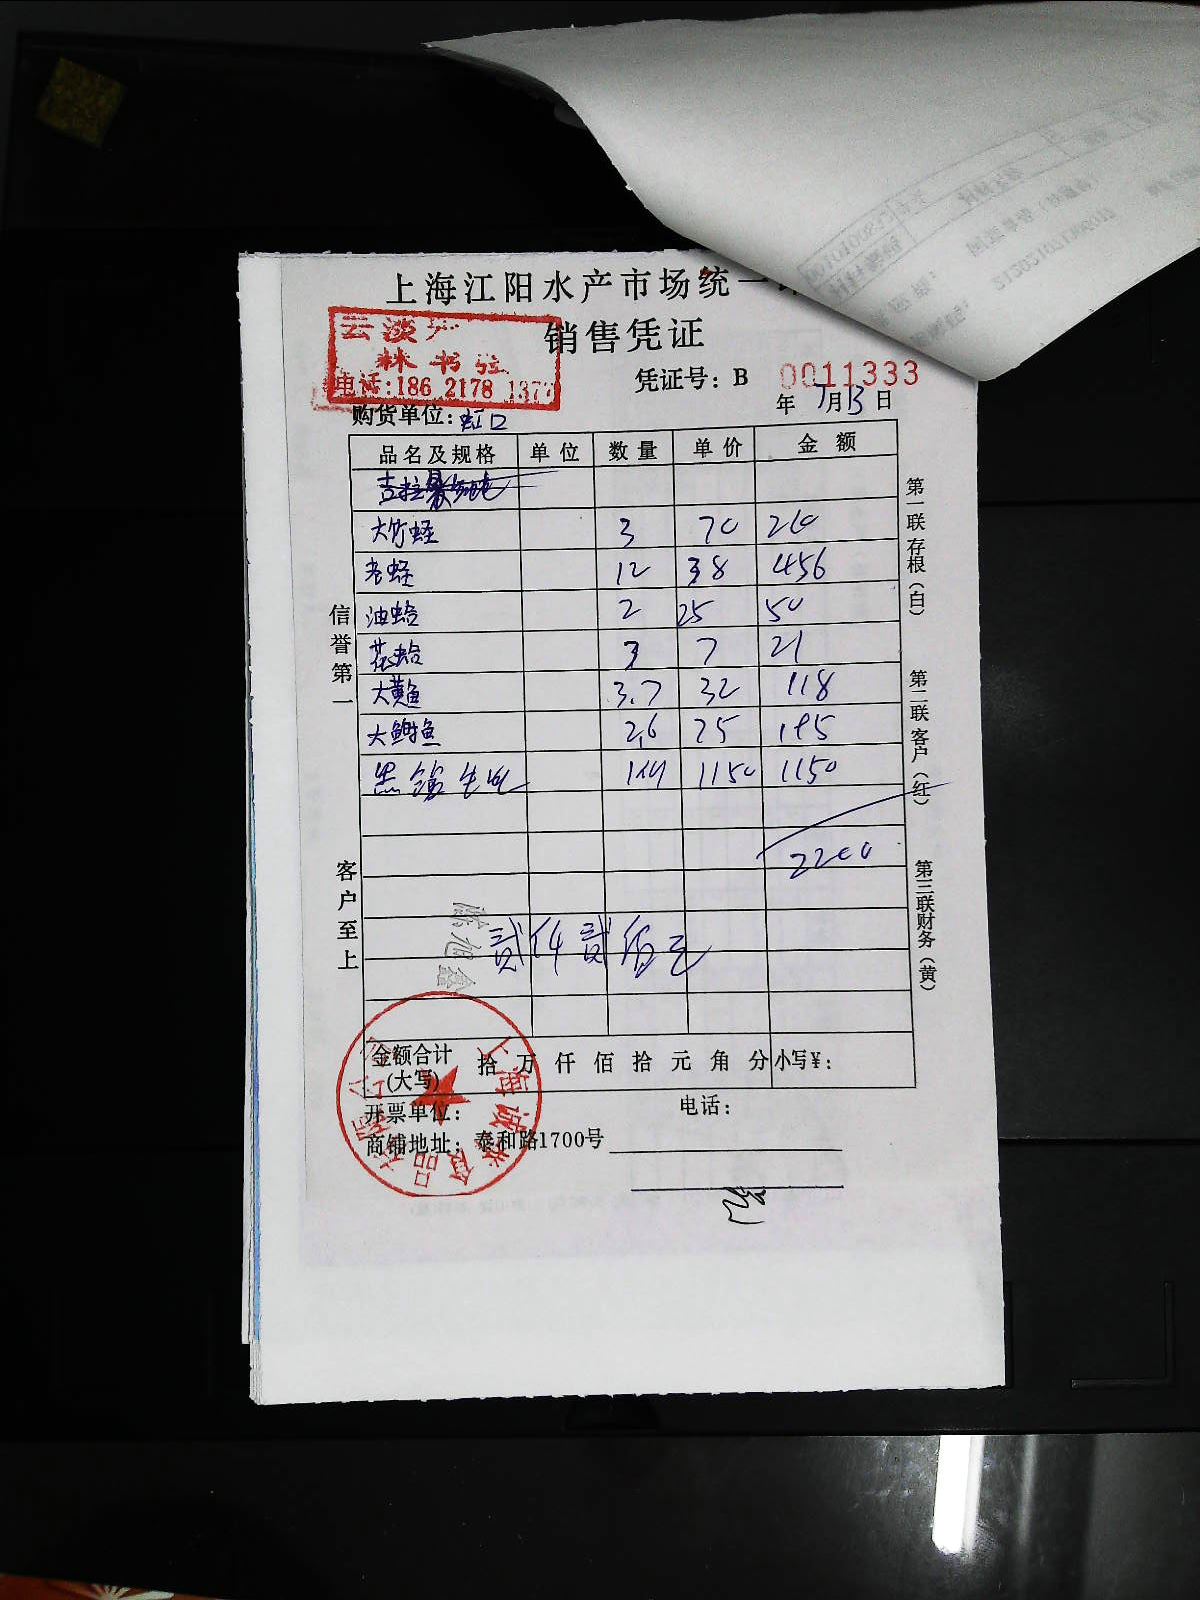 上海江阳水产市场统一
销售凭证
云淡
林书
电话:186 2178 1377
凭证号：B 0011333
年 7月13日
购货单位: 虹口
品名及规格 单位 数量 单价 金额
大竹蛏 3 70 210
老蛏 12 38 456
油蛤 2 25 50
花蛤 3 7 21
大黄鱼 3.7 32 118
大鲫鱼 2.6 75 195
黑 1150 1150
2200
贰仟贰佰元
陈旭鑫
金额合计
(大写) 拾 万 仟 佰 拾 元 角 分 小写¥：
开票单位： 电话：
商铺地址：泰和路1700号
信誉第一
客户至上
第一联存根（白）
第二联客户（红）
第三联财务（黄）
上海诚 食品 公司